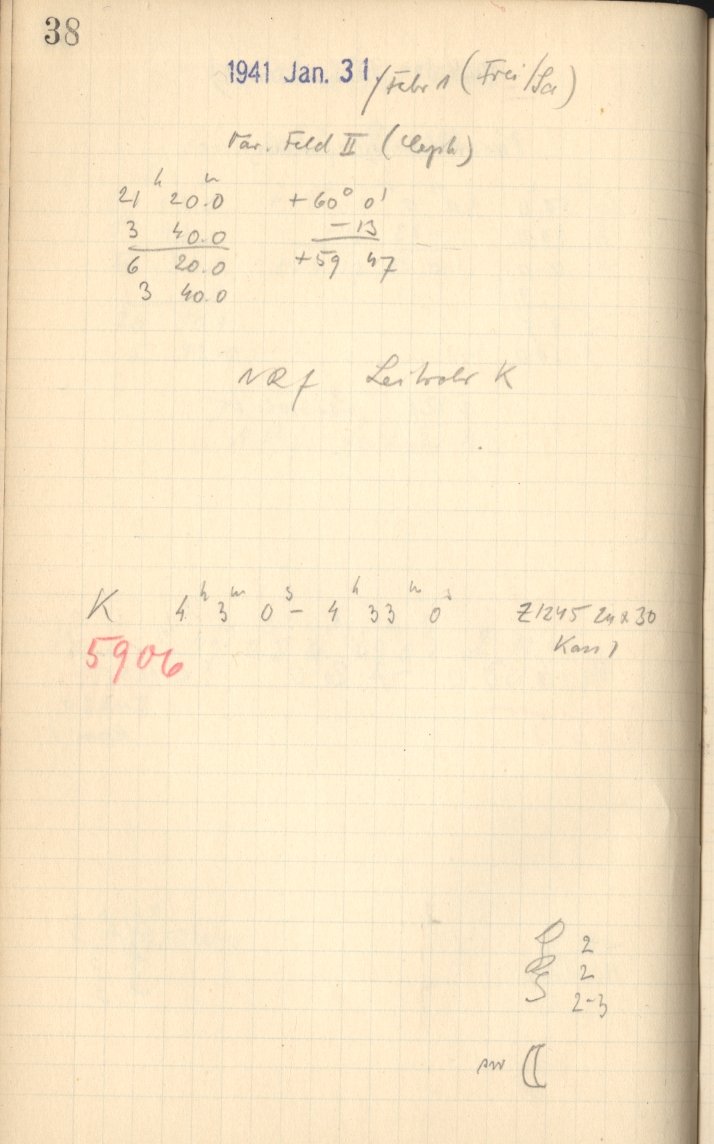 38
1941 Jan. 31./Febr 1 (Frei/Sa)
Var. Feld II (Ceph)
21ʰ 20.0ᵐ +60° 0'
3 40.0 -13
6 20.0 +59 47
3 40.0
Leitrohr K
K 4ʰ 3ᵐ 0ˢ - 4ʰ 33ᵐ 0ˢ Z1245 24x30
5906 Kass 1
L 2
R 2
S 2-3